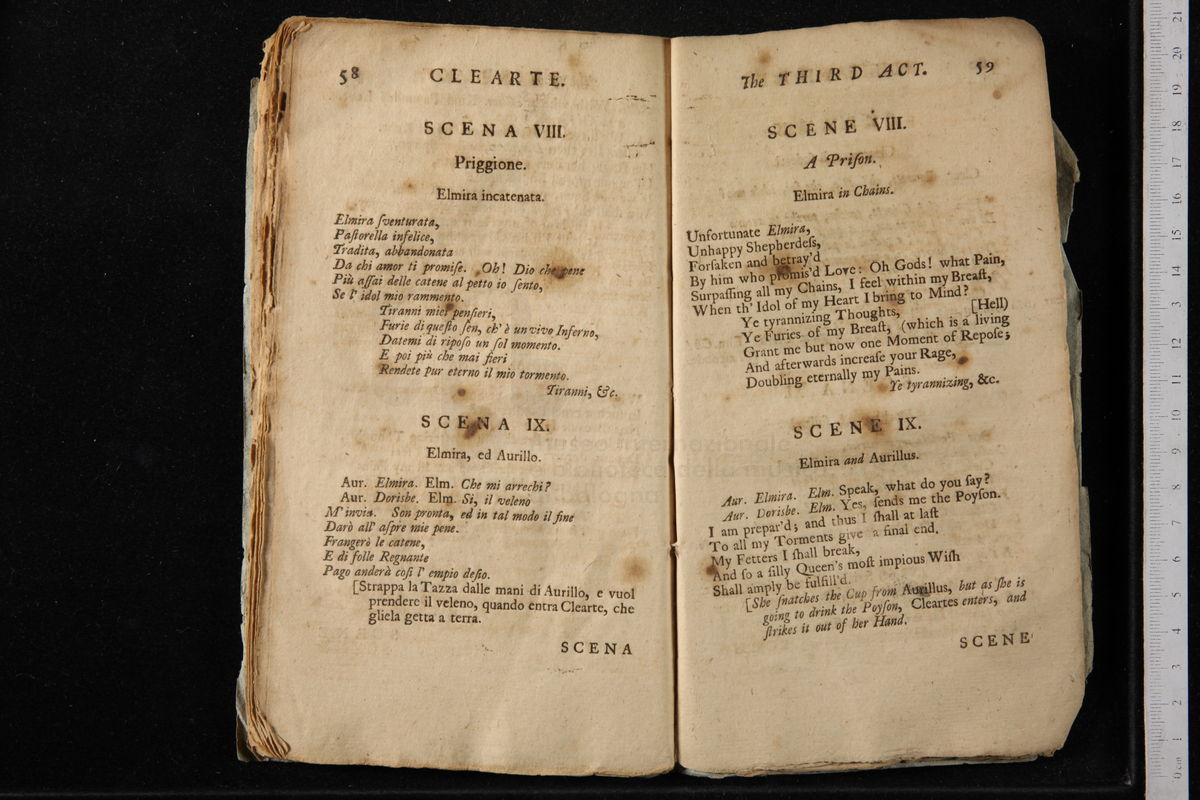 58 CLEARTE.
SCENA VIII.
Priggione.
Elmira incatenata.
Elmira ſventurata,
Paſtorella infelice,
Tradita, abbandonata
Da chi amor ti promiſe. Oh! Dio che pene
Più aſſai delle catene al petto io ſento,
Se l' idol mio rammento.
Tiranni miei penſieri,
Furie di queſto ſen, ch' è un vivo Inferno,
Datemi di ripoſo un ſol momento.
E poi più che mai fieri
Rendete pur eterno il mio tormento.
Tiranni, &c.
SCENA IX.
Elmira, ed Aurillo.
Aur. Elmira. Elm. Che mi arrechi?
Aur. Dorisbe. Elm. Sì, il veleno
M' invia. Son pronta, ed in tal modo il fine
Darò all' aſpre mie pene.
Frangerò le catene,
E di folle Regnante
Pago anderà coſì l' empio deſio.
[Strappa la Tazza dalle mani di Aurillo, e vuol
prendere il veleno, quando entra Clearte, che
gliela getta a terra.
SCENA
The THIRD ACT. 59
SCENE VIII.
A Priſon.
Elmira in Chains.
Unfortunate Elmira,
Unhappy Shepherdeſs,
Forſaken and betray'd
By him who promis'd Love: Oh Gods! what Pain,
Surpaſſing all my Chains, I feel within my Breaſt,
When th' Idol of my Heart I bring to Mind?
Ye tyrannizing Thoughts, [Hell)
Ye Furies of my Breaſt, (which is a living
Grant me but now one Moment of Repoſe;
And afterwards increaſe your Rage,
Doubling eternally my Pains.
Ye tyrannizing, &c.
SCENE IX.
Elmira and Aurillus.
Aur. Elmira. Elm. Speak, what do you ſay?
Aur. Dorisbe. Elm. Yes, ſends me the Poyſon.
I am prepar'd; and thus I ſhall at laſt
To all my Torments give a final end.
My Fetters I ſhall break,
And ſo a ſilly Queen's moſt impious Wiſh
Shall amply be fulfill'd.
[She ſnatches the Cup from Aurillus, but as ſhe is
going to drink the Poyſon, Cleartes enters, and
ſtrikes it out of her Hand.
SCENE